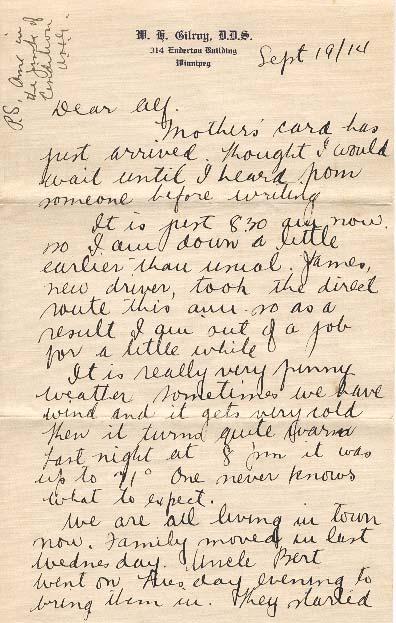 W. H. Gilroy, D.D.S.
314 Enderton Building
Winnipeg
Sept 19/14
P.S. Am in
the midst of
Dear Alf.
Mother's card has
just arrived. Thought I would
wait until I heard from
someone before writing
It is just 8.30 am now.
so I am down a little
earlier than usual. James,
new driver, took the direct
route this am. so as a
result I am out of a job
for a little while
It is really very funny
weather sometimes we have
wind and it gets very cold
then it turns quite warm
Last night at 8 pm it was
up to 71° One never knows
what to expect.
We are all living in town
now. Family moved in last
Wednesday. Uncle Bert
went on Tuesday evening to
bring them in. They started